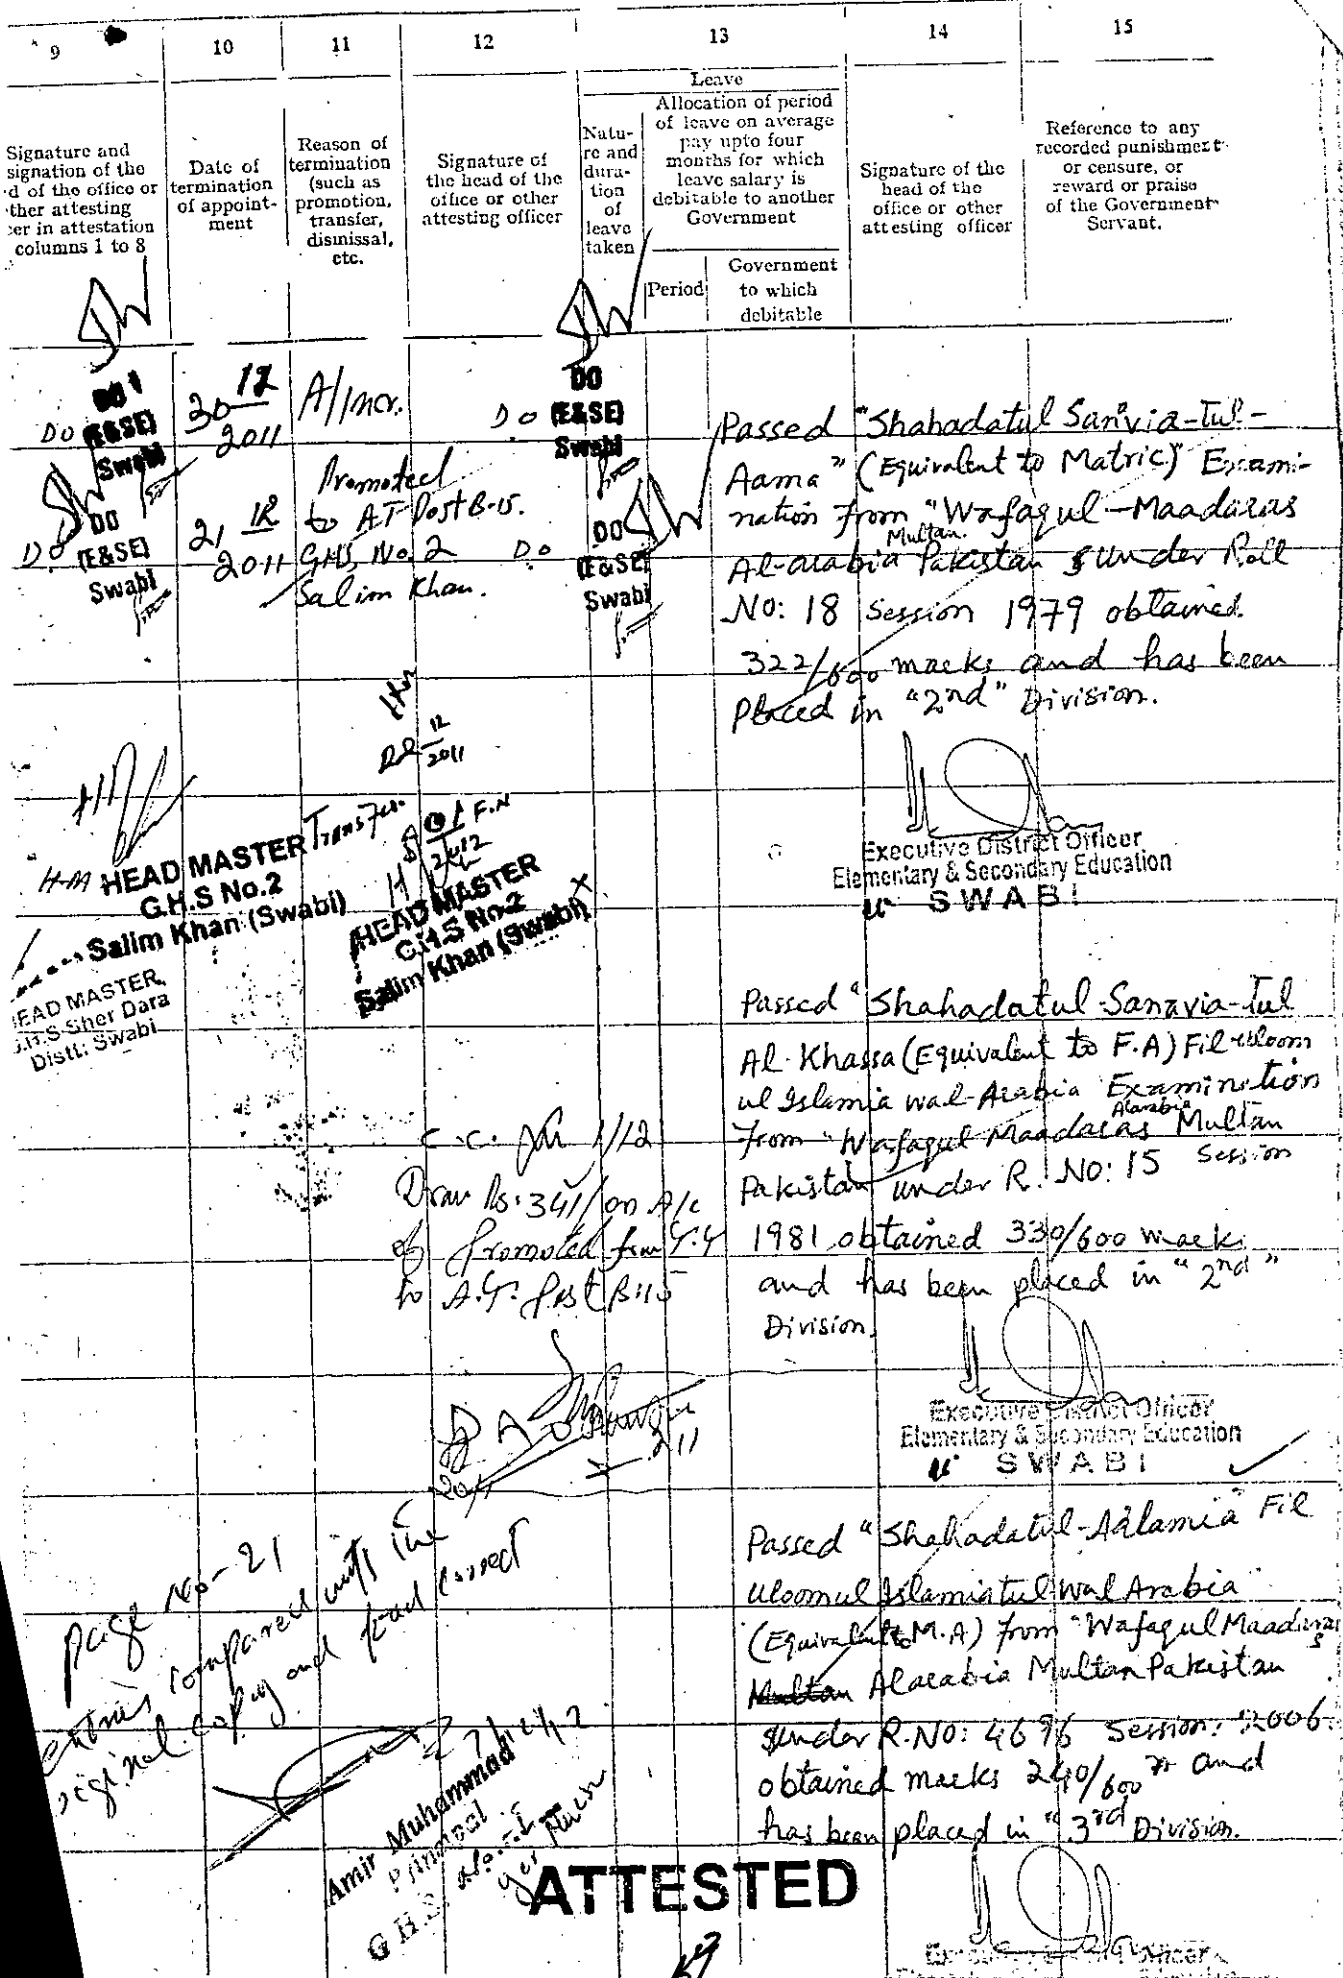 9 10 11 12 13 14 15
Signature and
signation of the
d of the office or
ther attesting
cer in attestation
columns 1 to 8
Date of
termination
of appoint-
ment
Reason of
termination
(such as
promotion,
transfer,
dismissal,
etc.
Signature of
the head of the
office or other
attesting officer
Leave
Natu-
re and
dura-
tion
of
leave
taken
Allocation of period
of leave on average
pay upto four
months for which
leave salary is
debitable to another
Government
Period
Government
to which
debitable
Signature of the
head of the
office or other
attesting officer
Reference to any
recorded punishment
or censure, or
reward or praise
of the Government
Servant.
DO
DO
(E&SE)
Swabi
30 12
2011
A/Incr.
DO
DO
(E&SE)
Swabi
DO
DO
(E&SE)
Swabi
21 12
2011
Promoted
to AT Post B-15.
GHS, No. 2
Salim Khan.
DO
DO
(E&SE)
Swabi
22 12
2011
H.M HEAD MASTER
G.H.S No.2
Salim Khan (Swabi)
Transfer
F.N
HEAD MASTER
G.H.S No.2
Salim Khan (Swabi)
HEAD MASTER,
G.H.S Sher Dara
Distt: Swabi
Passed "Shahadatul Sanvia-tul-
Aama" (Equivalent to Matric) Exami-
nation from "Wafaqul-Maadaras
Multan.
Al-arabia Pakistan under Roll
No: 18 Session 1979 obtained
322/600 marks and has been
Placed in "2nd" Division.
Executive District Officer
Elementary & Secondary Education
SWABI
Passed "Shahadatul-Sanavia-tul
Al-Khassa (Equivalent to F.A) Fil-uloom
ul Islamia wal-Arabia Examination
Alarabia
from "Wafaqul Maadaras Multan
Pakistan under R. NO: 15 Session
1981 obtained 330/600 marks
and has been placed in "2nd"
Division.
Executive District Officer
Elementary & Secondary Education
SWABI
1/12
Draw Rs: 341/ on A/c
of Promoted from T.T
to A.T. Post B:15
Passed "Shahadatul-Aalamia Fil
uloomul Islamiatul Wal Arabia
(Equivalent to M.A) from "Wafaqul Maadaras
Multan Alarabia Multan Pakistan
under R.NO: 4696 Session: 2006
obtained marks 240/600 and
has been placed in "3rd Division.
Page No-21
entries compared with the
original copy and found correct
Amir Muhammad
Principal
G.H.S.
ATTESTED
Executive District Officer